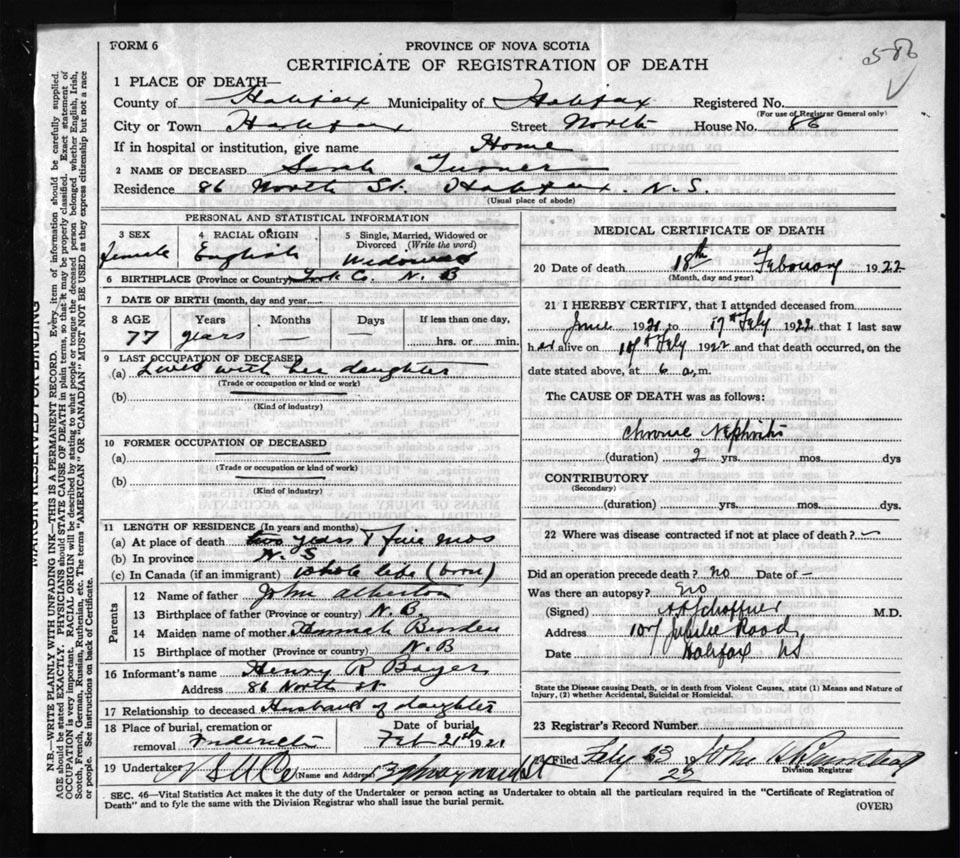 586
FORM 6
PROVINCE OF NOVA SCOTIA
CERTIFICATE OF REGISTRATION OF DEATH
1 PLACE OF DEATH—
County of Halifax Municipality of Halifax Registered No.
(For use of Registrar General only)
City or Town Halifax Street North House No. 86
If in hospital or institution, give name Home
2 NAME OF DECEASED Sarah Turner
Residence 86 North St. Halifax. N.S.
(Usual place of abode)
PERSONAL AND STATISTICAL INFORMATION
3 SEX Female
4 RACIAL ORIGIN English
5 Single, Married, Widowed or Divorced (Write the word) Widowed
6 BIRTHPLACE (Province or Country) York Co. N. B
7 DATE OF BIRTH (month, day and year)
8 AGE Years Months Days If less than one day,
77 years — — hrs. or min.
9 LAST OCCUPATION OF DECEASED
(a) Lives with her daughter
(Trade or occupation or kind or work)
(b)
(Kind of industry)
10 FORMER OCCUPATION OF DECEASED
(a)
(Trade or occupation or kind or work)
(b)
(Kind of industry)
11 LENGTH OF RESIDENCE (In years and months)
(a) At place of death two years & five mos
(b) In province N. S
(c) In Canada (if an immigrant) whole life (born)
Parents
12 Name of father John Atherton
13 Birthplace of father (Province or country) N. B.
14 Maiden name of mother Hannah Burden
15 Birthplace of mother (Province or country) N. B
16 Informant's name Henry R
Address 86 North st
17 Relationship to deceased Husband of daughter
18 Place of burial, cremation or removal
Date of burial Feb 21st 1921
19 Undertaker (Name and Address)
MEDICAL CERTIFICATE OF DEATH
20 Date of death 18th February 1922
(Month, day and year)
21 I HEREBY CERTIFY, that I attended deceased from
June 1921 to 17th Feby 1922 that I last saw
her alive on Feby 1922 and that death occurred, on the
date stated above, at 6 a, m.
The CAUSE OF DEATH was as follows:
Chronic Nephritis
(duration) 2 yrs. mos. dys
CONTRIBUTORY
(Secondary)
(duration) yrs. mos. dys.
22 Where was disease contracted if not at place of death? —
Did an operation precede death? no Date of —
Was there an autopsy? no
(Signed) M.D.
Address Jubilee Road
Date Halifax NS
State the Disease causing Death, or in death from Violent Causes, state (1) Means and Nature of
Injury, (2) whether Accidental, Suicidal or Homicidal.
23 Registrar's Record Number
24 Filed Feby 19 John
Division Registrar
SEC. 46—Vital Statistics Act makes it the duty of the Undertaker or person acting as Undertaker to obtain all the particulars required in the "Certificate of Registration of
Death" and to fyle the same with the Division Registrar who shall issue the burial permit.
(OVER)
MARGIN RESERVED FOR BINDING
N.B.—WRITE PLAINLY WITH UNFADING INK—THIS IS A PERMANENT RECORD. Every item of information should be carefully supplied.
AGE should be stated EXACTLY. PHYSICIANS should STATE CAUSE OF DEATH in plain terms, so that it may be properly classified. Exact statement of
OCCUPATION is very important. RACIAL ORIGIN will be described by stating to what people or tongue the deceased person belonged whether English, Irish,
Scotch, French, German, Russian, Ruthenian, etc. The terms "AMERICAN" OR "CANADIAN" MUST NOT BE USED as they express citizenship but not a race
or people. See instructions on back of Certificate.